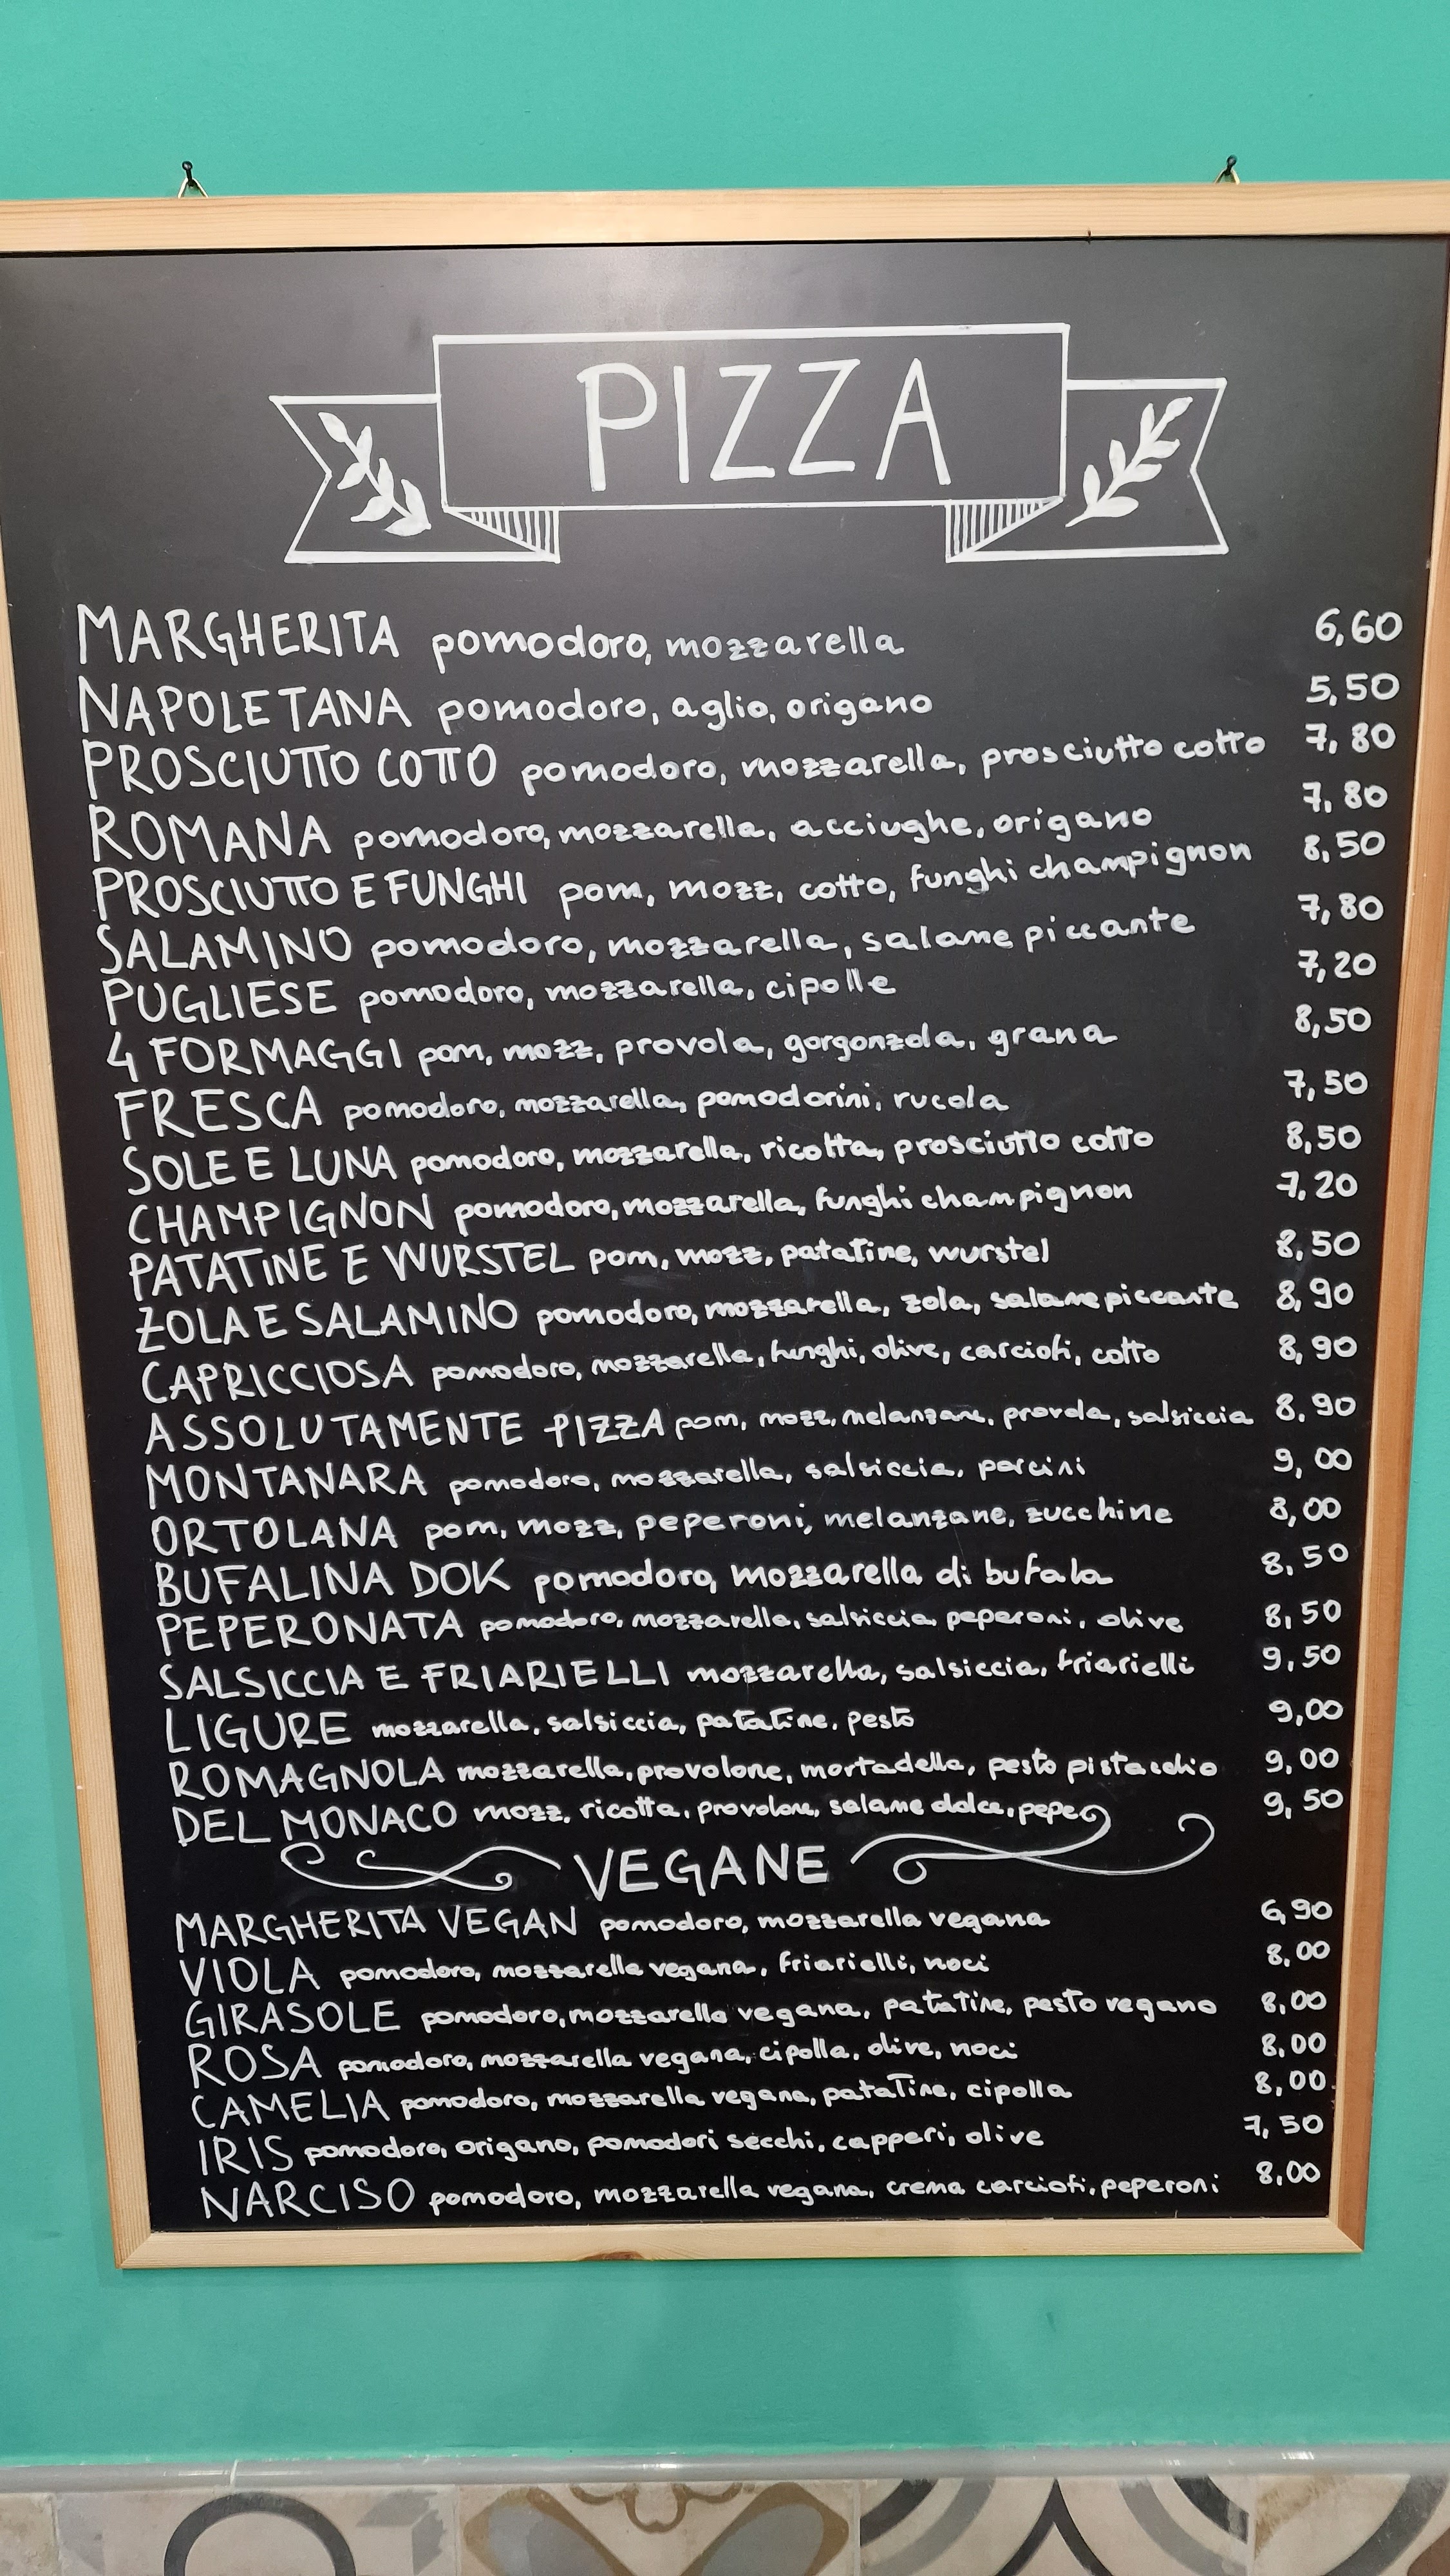 PIZZA
MARGHERITA pomodoro, mozzarella 6,60
NAPOLETANA pomodoro, aglio, origano 5,50
PROSCIUTTO COTTO pomodoro, mozzarella, prosciutto cotto 7,80
ROMANA pomodoro, mozzarella, acciughe, origano 7,80
PROSCIUTTO E FUNGHI pom, mozz, cotto, funghi champignon 8,50
SALAMINO pomodoro, mozzarella, salame piccante 7,80
PUGLIESE pomodoro, mozzarella, cipolle 7,20
4 FORMAGGI pom, mozz, provola, gorgonzola, grana 8,50
FRESCA pomodoro, mozzarella, pomodorini, rucola 7,50
SOLE E LUNA pomodoro, mozzarella, ricotta, prosciutto cotto 8,50
CHAMPIGNON pomodoro, mozzarella, funghi champignon 7,20
PATATINE E WURSTEL pom, mozz, patatine, wurstel 8,50
ZOLA E SALAMINO pomodoro, mozzarella, zola, salame piccante 8,90
CAPRICCIOSA pomodoro, mozzarella, funghi, olive, carciofi, cotto 8,90
ASSOLUTAMENTE PIZZA pom, mozz, melanzane, provola, salsiccia 8,90
MONTANARA pomodoro, mozzarella, salsiccia, porcini 9,00
ORTOLANA pom, mozz, peperoni, melanzane, zucchine 8,00
BUFALINA DOK pomodoro, mozzarella di bufala 8,50
PEPERONATA pomodoro, mozzarella, salsiccia, peperoni, olive 8,50
SALSICCIA E FRIARIELLI mozzarella, salsiccia, friarielli 9,50
LIGURE mozzarella, salsiccia, patatine, pesto 9,00
ROMAGNOLA mozzarella, provolone, mortadella, pesto pistacchio 9,00
DEL MONACO mozz, ricotta, provolone, salame dolce, pepe 9,50
VEGANE
MARGHERITA VEGAN pomodoro, mozzarella vegana 6,90
VIOLA pomodoro, mozzarella vegana, friarielli, noci 8,00
GIRASOLE pomodoro, mozzarella vegana, patatine, pesto vegano 8,00
ROSA pomodoro, mozzarella vegana, cipolla, olive, noci 8,00
CAMELIA pomodoro, mozzarella vegana, patatine, cipolla 8,00
IRIS pomodoro, origano, pomodori secchi, capperi, olive 7,50
NARCISO pomodoro, mozzarella vegana, crema carciofi, peperoni 8,00